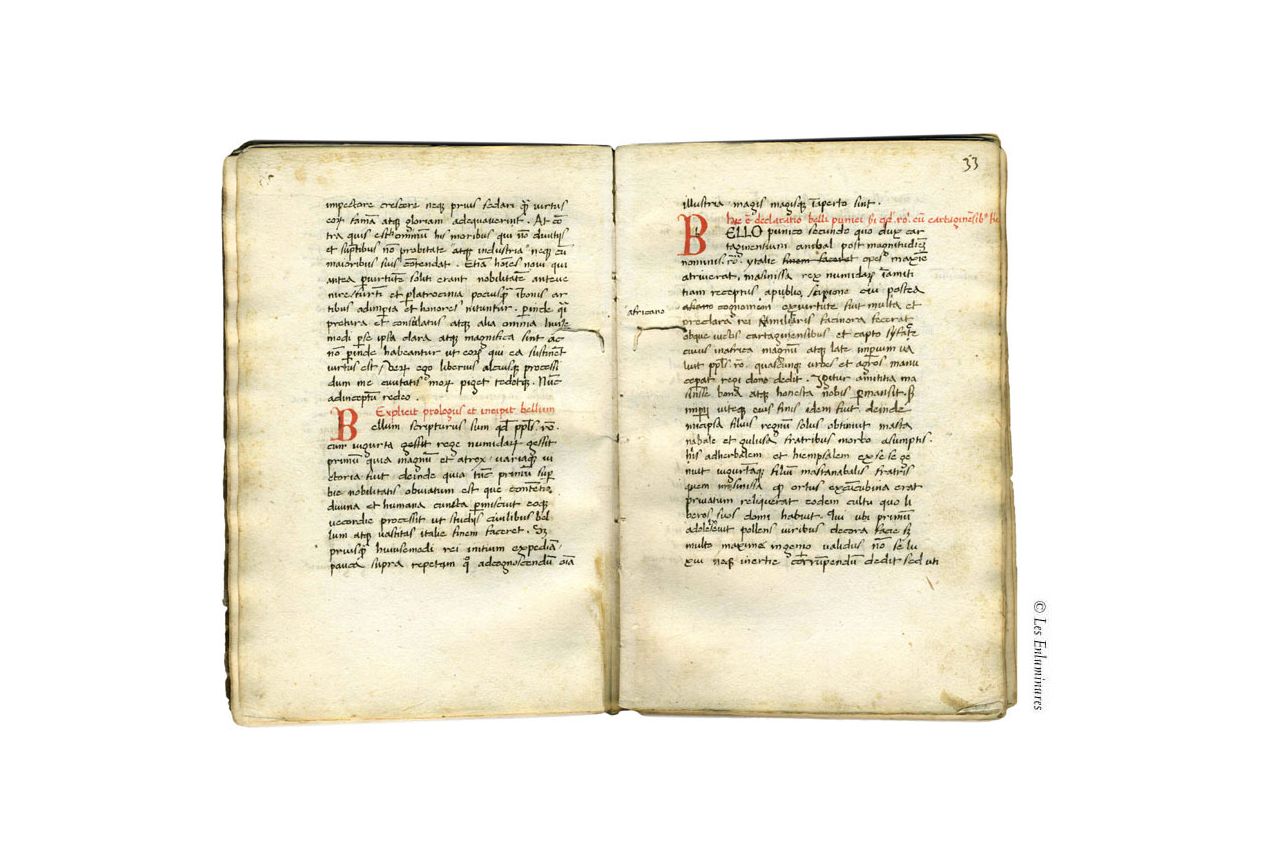 impectore crescere neq; prius sedari q̃ virtus
eoꝝ famã atq; gloriam adequaverint. At cõ
tra quis est ominiũ his moribus qui nõ divitijs
et sũptibus nõ probitate atq; industria neq; cũ
maioribus suis cõtendat. Etiã hoĩes novi qui
antea p virtutẽ soliti erant nobilitatẽ anteve
nire furtĩ et p latrocinia potius q̃ bonis ar
tibus ad impia et honores nituntur. pinde q̃i
pretura et consulatus atq; alia omnia huisce
modi p se ipsa clara atq; magnifica sint ac
nõ pinde habeantur ut eoꝝ qui ea sustinẽt
virtus est. Veꝝ ego liberius altiusq; processi
dum me civitatis moꝝ piget tedetq;. Nũc
ad inceptũ redeo.
Explicit prologus et incipit bellum
Bellum scripturus sum qđ ppl̃s. ro.
cum iugurta gessit rege numidaꝝ gessit
primũ quia magnũ et atrox variaq; vi
ctoria fuit deinde quia tũc primũ sup
bie nobilitatis obviatum est que contẽtio
divina et humana cuncta pmiscuit eoq;
vecordie processit ut studijs civilibus bel
lum atq; vastitas italie finem faceret. Sꝫ
priusq̃ huiusemodi rei initium expediã
pauca supra repetam q̃ ad cognoscendũ oĩa
33
illustria magis magisq; ĩ aperto sint.
hic ẽ declaratio belli punici
BELLO punico secundo quo dux car
taginensium anibal post magnitudiẽ
nominis. ro. ytalie finem faceret opes maxĩe
atriverat, masinissa rex numidaꝝ ĩ amici
tiam receptus a publio scipione cui postea
africano
africano cognomen ex virtute fuit multa et
preclara rei familiaris facinora fecerat
obque victos cartaginensibus et capto syface
cuius in africa magnũ atq; late impium va
luit ppl̃s. ro. quascunq; urbes et agros manu
ceperat regi dono dedit. Igitur amititia ma
sinisse bona atq; honesta nobis pmansit. sꝫ
impij viteq; eius finis idem fuit deinde
micipsa filius regnũ solus obtinuit masta
nabale et gulusa fratribus morbo asumptis.
his adherbalem et hiempsalem ex se se ge
nuit iugurtãq; filiũ mastanabalis fratris
quem masinissa q̃ ortus ex cũcubina erat
privatum reliquerat eodem cultu quo li
beros suos domi habuit. Qui ubi primũ
adolescuit pollens viribus decora facie sꝫ
multo maxime ingenio validus nõ se lu
xui neq; inertie corrũpendũ dedit sed uti
© Les Enluminures